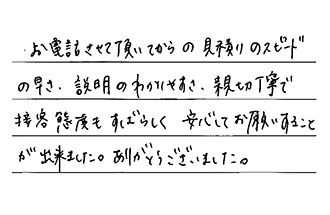 ・お電話させて頂いてからの見積りのスピード
の早さ、説明のわかりやすさ、親切丁寧で
接客態度もすばらしく安心してお願いすること
が出来ました。ありがとうございました。